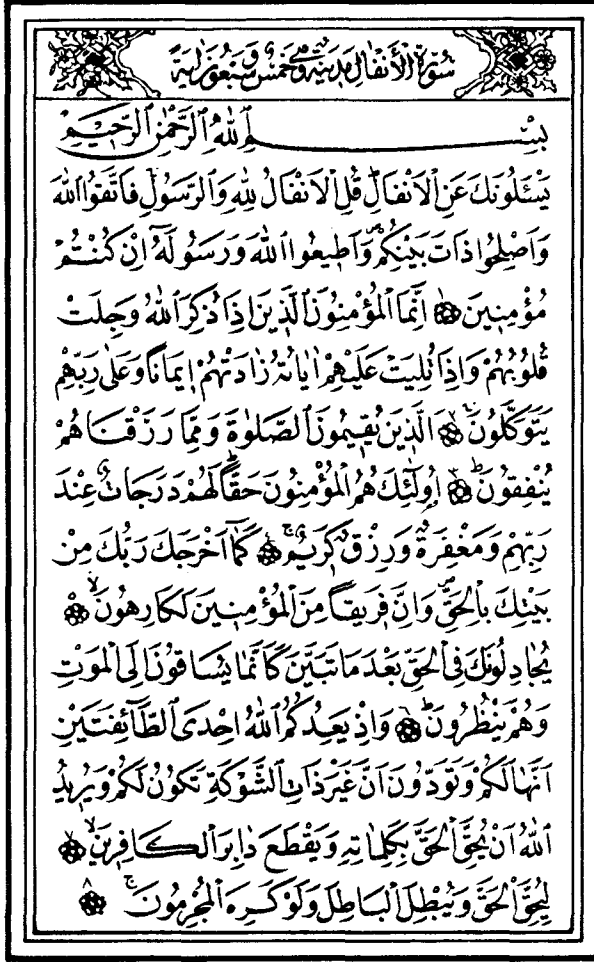 سُورَةُ الْاَنْفَالِ مَدَنِيَّةٌ وَهِيَ خَمْسٌ وَسَبْعُونَ اٰيَةً
بِسْمِ اللّٰهِ الرَّحْمٰنِ الرَّحٖيمِ
يَسْـَٔلُونَكَ عَنِ الْاَنْفَالِؕ قُلِ الْاَنْفَالُ لِلّٰهِ وَالرَّسُولِۚ فَاتَّقُوا اللّٰهَ
وَاَصْلِحُوا ذَاتَ بَيْنِكُمْࣕ وَاَطٖيعُوا اللّٰهَ وَرَسُولَهُٓ اِنْ كُنْتُمْ
مُؤْمِنٖينَ ۝ اِنَّمَا الْمُؤْمِنُونَ الَّذٖينَ اِذَا ذُكِرَ اللّٰهُ وَجِلَتْ
قُلُوبُهُمْ وَاِذَا تُلِيَتْ عَلَيْهِمْ اٰيَاتُهُ زَادَتْهُمْ اٖيمَانًا وَعَلٰى رَبِّهِمْ
يَتَوَكَّلُونَۚ ۝ اَلَّذٖينَ يُقٖيمُونَ الصَّلٰوةَ وَمِمَّا رَزَقْنَاهُمْ
يُنْفِقُونَؕ ۝ اُو۬لٰٓئِكَ هُمُ الْمُؤْمِنُونَ حَقًّاؕ لَهُمْ دَرَجَاتٌ عِنْدَ
رَبِّهِمْ وَمَغْفِرَةٌ وَرِزْقٌ كَرٖيمٌۚ ۝ كَمَٓا اَخْرَجَكَ رَبُّكَ مِنْ
بَيْتِكَ بِالْحَقِّࣕ وَاِنَّ فَرٖيقًا مِنَ الْمُؤْمِنٖينَ لَكَارِهُونَۙ ۝
يُجَادِلُونَكَ فِي الْحَقِّ بَعْدَ مَا تَبَيَّنَ كَاَنَّمَا يُسَاقُونَ اِلَى الْمَوْتِ
وَهُمْ يَنْظُرُونَؕ ۝ وَاِذْ يَعِدُكُمُ اللّٰهُ اِحْدَى الطَّٓائِفَتَيْنِ
اَنَّهَا لَكُمْ وَتَوَدُّونَ اَنَّ غَيْرَ ذَاتِ الشَّوْكَةِ تَكُونُ لَكُمْ وَيُرٖيدُ
اللّٰهُ اَنْ يُحِقَّ الْحَقَّ بِكَلِمَاتِهٖ وَيَقْطَعَ دَابِرَ الْكَافِرٖينَۙ ۝
لِيُحِقَّ الْحَقَّ وَيُبْطِلَ الْبَاطِلَ وَلَوْ كَرِهَ الْمُجْرِمُونَۚ ۝٨